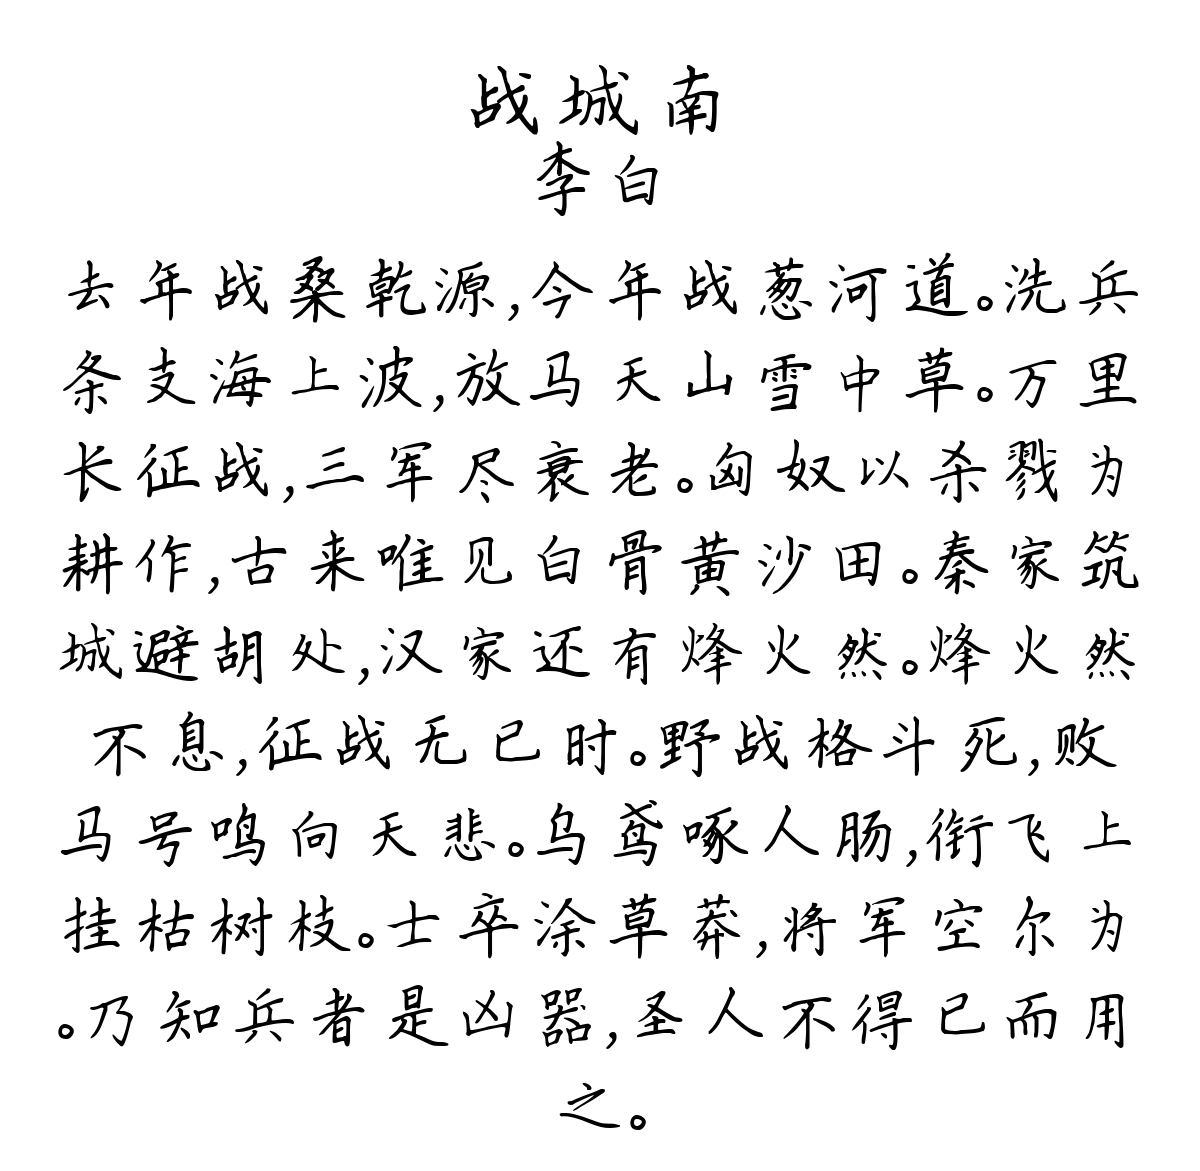 战城南
李白
去年战桑乾源,今年战葱河道。洗兵
条支海上波,放马天山雪中草。万里
长征战,三军尽衰老。匈奴以杀戮为
耕作,古来唯见白骨黄沙田。秦家筑
城避胡处,汉家还有烽火然。烽火然
不息,征战无已时。野战格斗死,败
马号鸣向天悲。乌鸢啄人肠,衔飞上
挂枯树枝。士卒涂草莽,将军空尔为
。乃知兵者是凶器,圣人不得已而用
之。